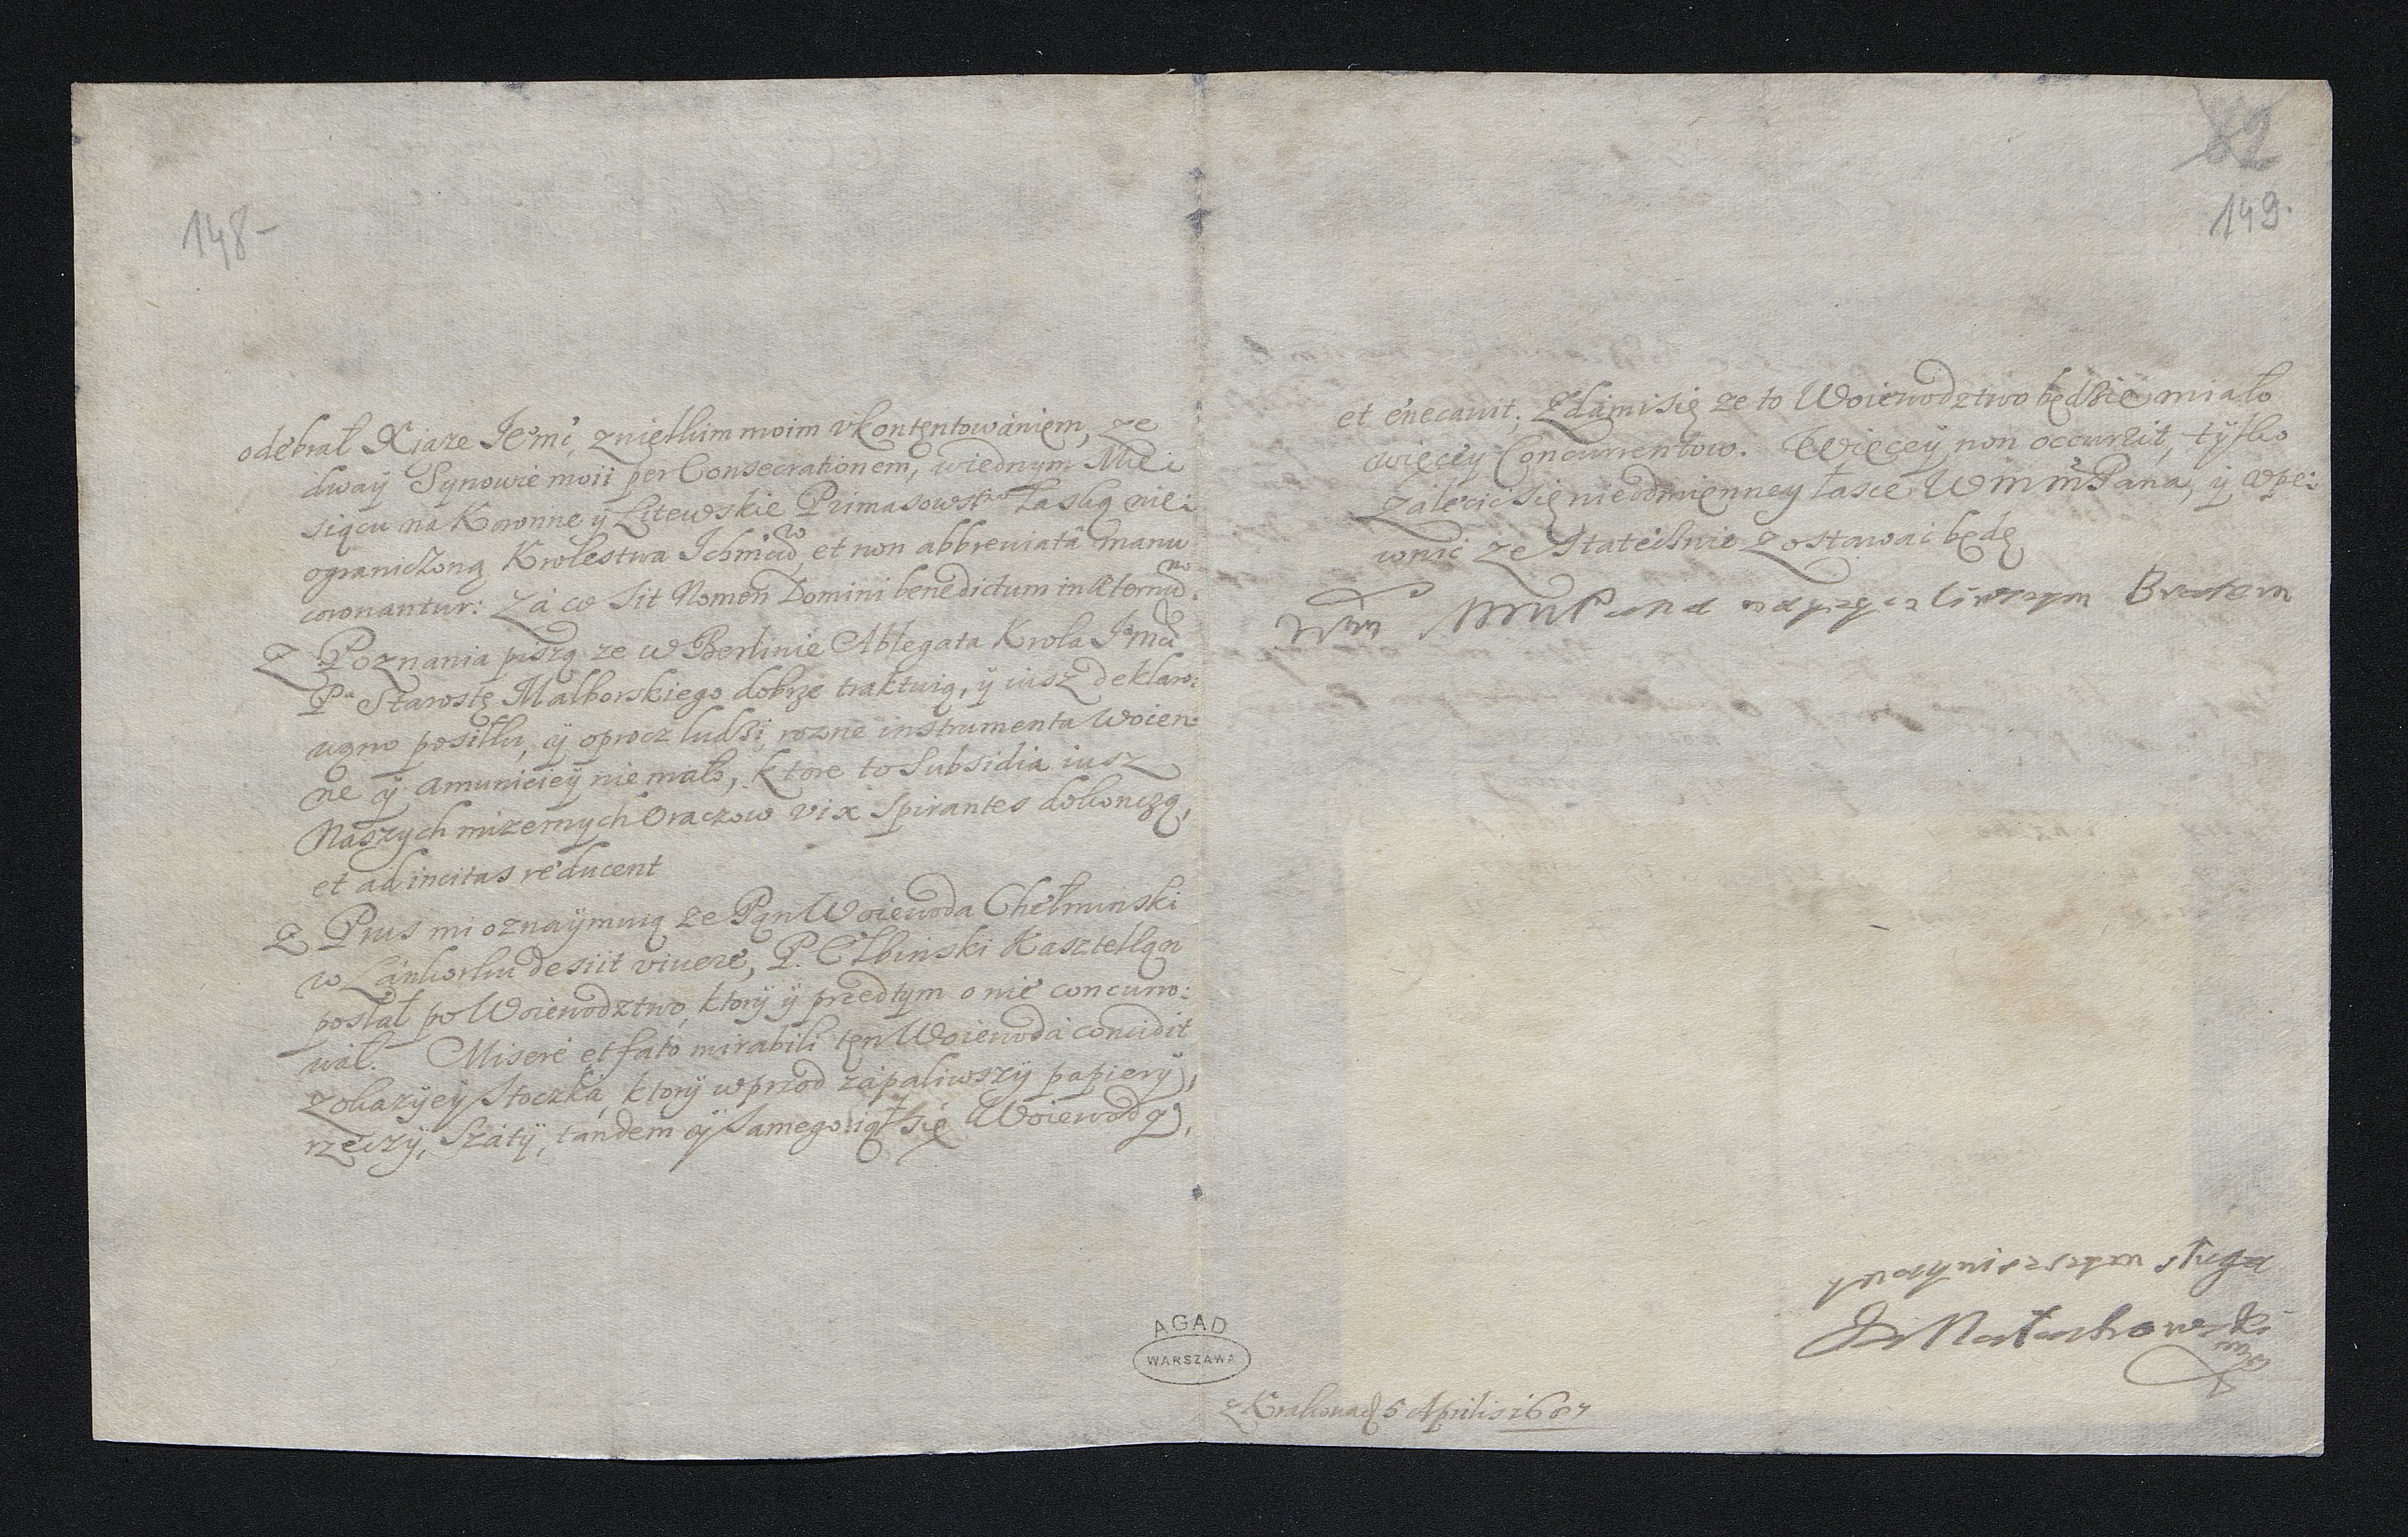 148-
odebrał Xiąze Jemć, z wielkim moim vkontentowaniem, ze
dway Synowie moii per Consecrationem, wiednym Mie:
siącu na Koronne ÿ Litewskie Primasowstwo Łaską nie:
ograniczoną Krolestwa Ichmciow, et non abbreuiatâ manu
coronantur: Zá co sit Nomen Domini benedictum in æternum.
Z Poznania piszą ze w Berlinie Ablegata Krola Jemci
Pa Starostę Malborskiego dobrze traktuią, ÿ iusz deklaro:
uano posiłku, ÿ oprocz ludźi rozne instrumenta Woien:
ne ÿ amunicieÿ nie mało, ktore to Subsidia iusz
Naszych mizernych Oraczow vix spirantes dokonczą,
et ad incitas reducent
Z Prus mi oznaÿmuią ze Pan Woiewoda Chełminski
w Lánkorku desiit viuere, P. Elbinski Kasztellan
posłał po Woiewodztwo, ktorÿ ÿ przedtym o nie concurro:
wał. Miserè et fato mirabili ten Woiewodá concidit
z okazÿeÿ Stoczká, ktorÿ wprzod zápaliwszÿ papierÿ,
rzeczÿ, Szátÿ, tandem ÿ samego iął się Woiewodÿ,
82
149.
et enecauit. Zda mi się ze to Woiewodztwo będźie miało
więceÿ Concurrentow. Więceÿ non occurrit, tÿlko
zálecić się nieodmienneÿ łasce WmmPana, ÿ vpe:
wnić ze Státecznie zostawać będę
Wm MMPana nayzyczliwszym Bratem
y naynizszym sługą
Jn Małachowski
z Krakowa d 5 Aprilis 1687
AGAD
WARSZAWA